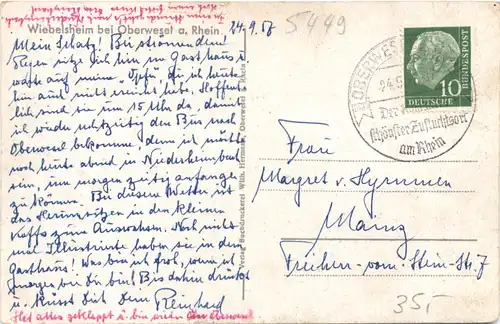 Wiebelsheim bei Oberwesel a. Rhein
24.9.58
5449
Mein Schatz! Bei strömendem
Regen sitze ich hier im Gasthaus u.
warte auf meine "Opfer" die ich heute
hier auf nicht erreicht habe. Hoffent-
lich sind sie um 15 Uhr da, damit
ich wieder rechtzeitig den Bus nach
Oberwesel bekomme, denn ich möchte
noch heute abend in Niederheimbach
sein, um morgen zeitig anfangen
zu können. Bei diesem Wetter ist
das Herumsitzen in den kleinen
Kaffs zum Auswachsen. Noch nicht
mal Illustrierte haben sie in dem
Gasthaus! Was bin ich froh, wenn ich
morgen bei Dir bin! Bis dahin drückt
u. küsst Dich Dein Reinhard
Hat alles geklappt u. bin wieder in Oberwesel
Verlag Buchdruckerei Wilh. Hermann, Oberwesel a. Rhein
24.9.
schönster Zufluchtsort
am Rhein
10
DEUTSCHE
BUNDESPOST
Frau
Margret v. Hymmen
Mainz
Freiherr-vom-Stein-Str. 7
35,-